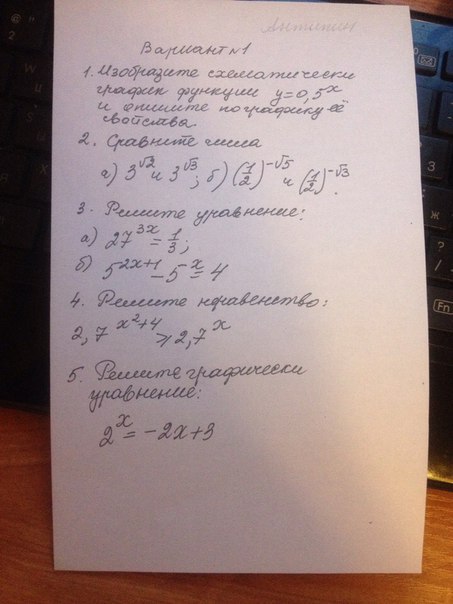 Вариант №1
1. Изобразите схематически
график функции y=0,5^x
и опишите по графику её
свойства.
2. Сравните числа
а) 3^√2 и 3^√3; б) (1/2)^-√5 и (1/2)^-√3.
3. Решите уравнение:
а) 27^3x = 1/3;
б) 5^2x+1 - 5^x = 4
4. Решите неравенство:
2,7^x²+4 ⩾ 2,7^x
5. Решите графически
уравнение:
2^x = -2x+3
Ж
Fn